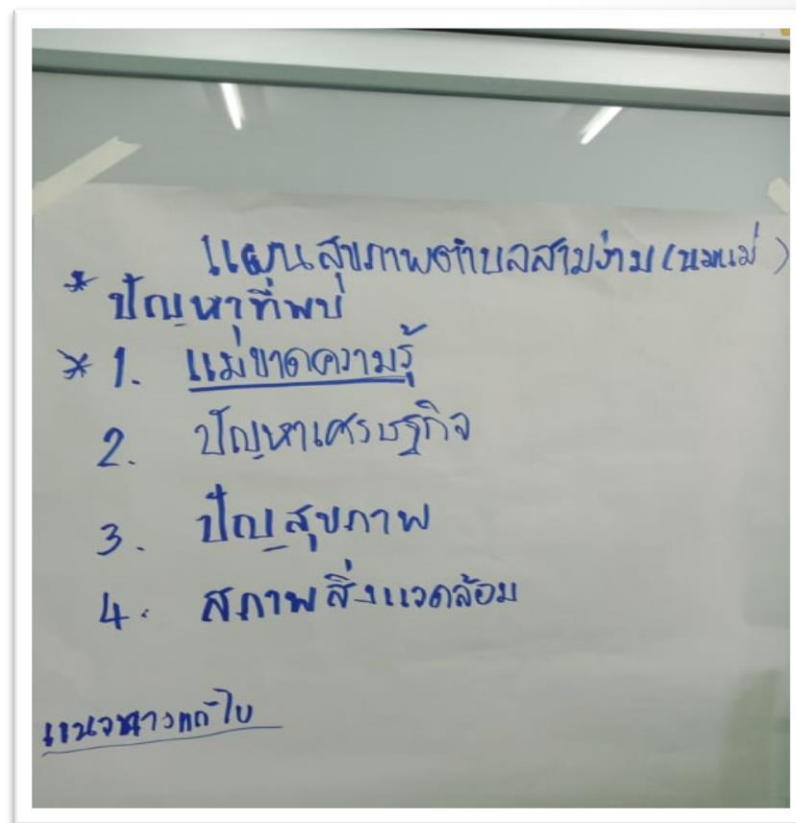 แผนสุขภาพตำบลสามง่าม (นมแม่)
* ปัญหาที่พบ
* 1. แม่ขาดความรู้
2. ปัญหาเศรษฐกิจ
3. ปัญสุขภาพ
4. สภาพสิ่งแวดล้อม
แนวทางแก้ไข